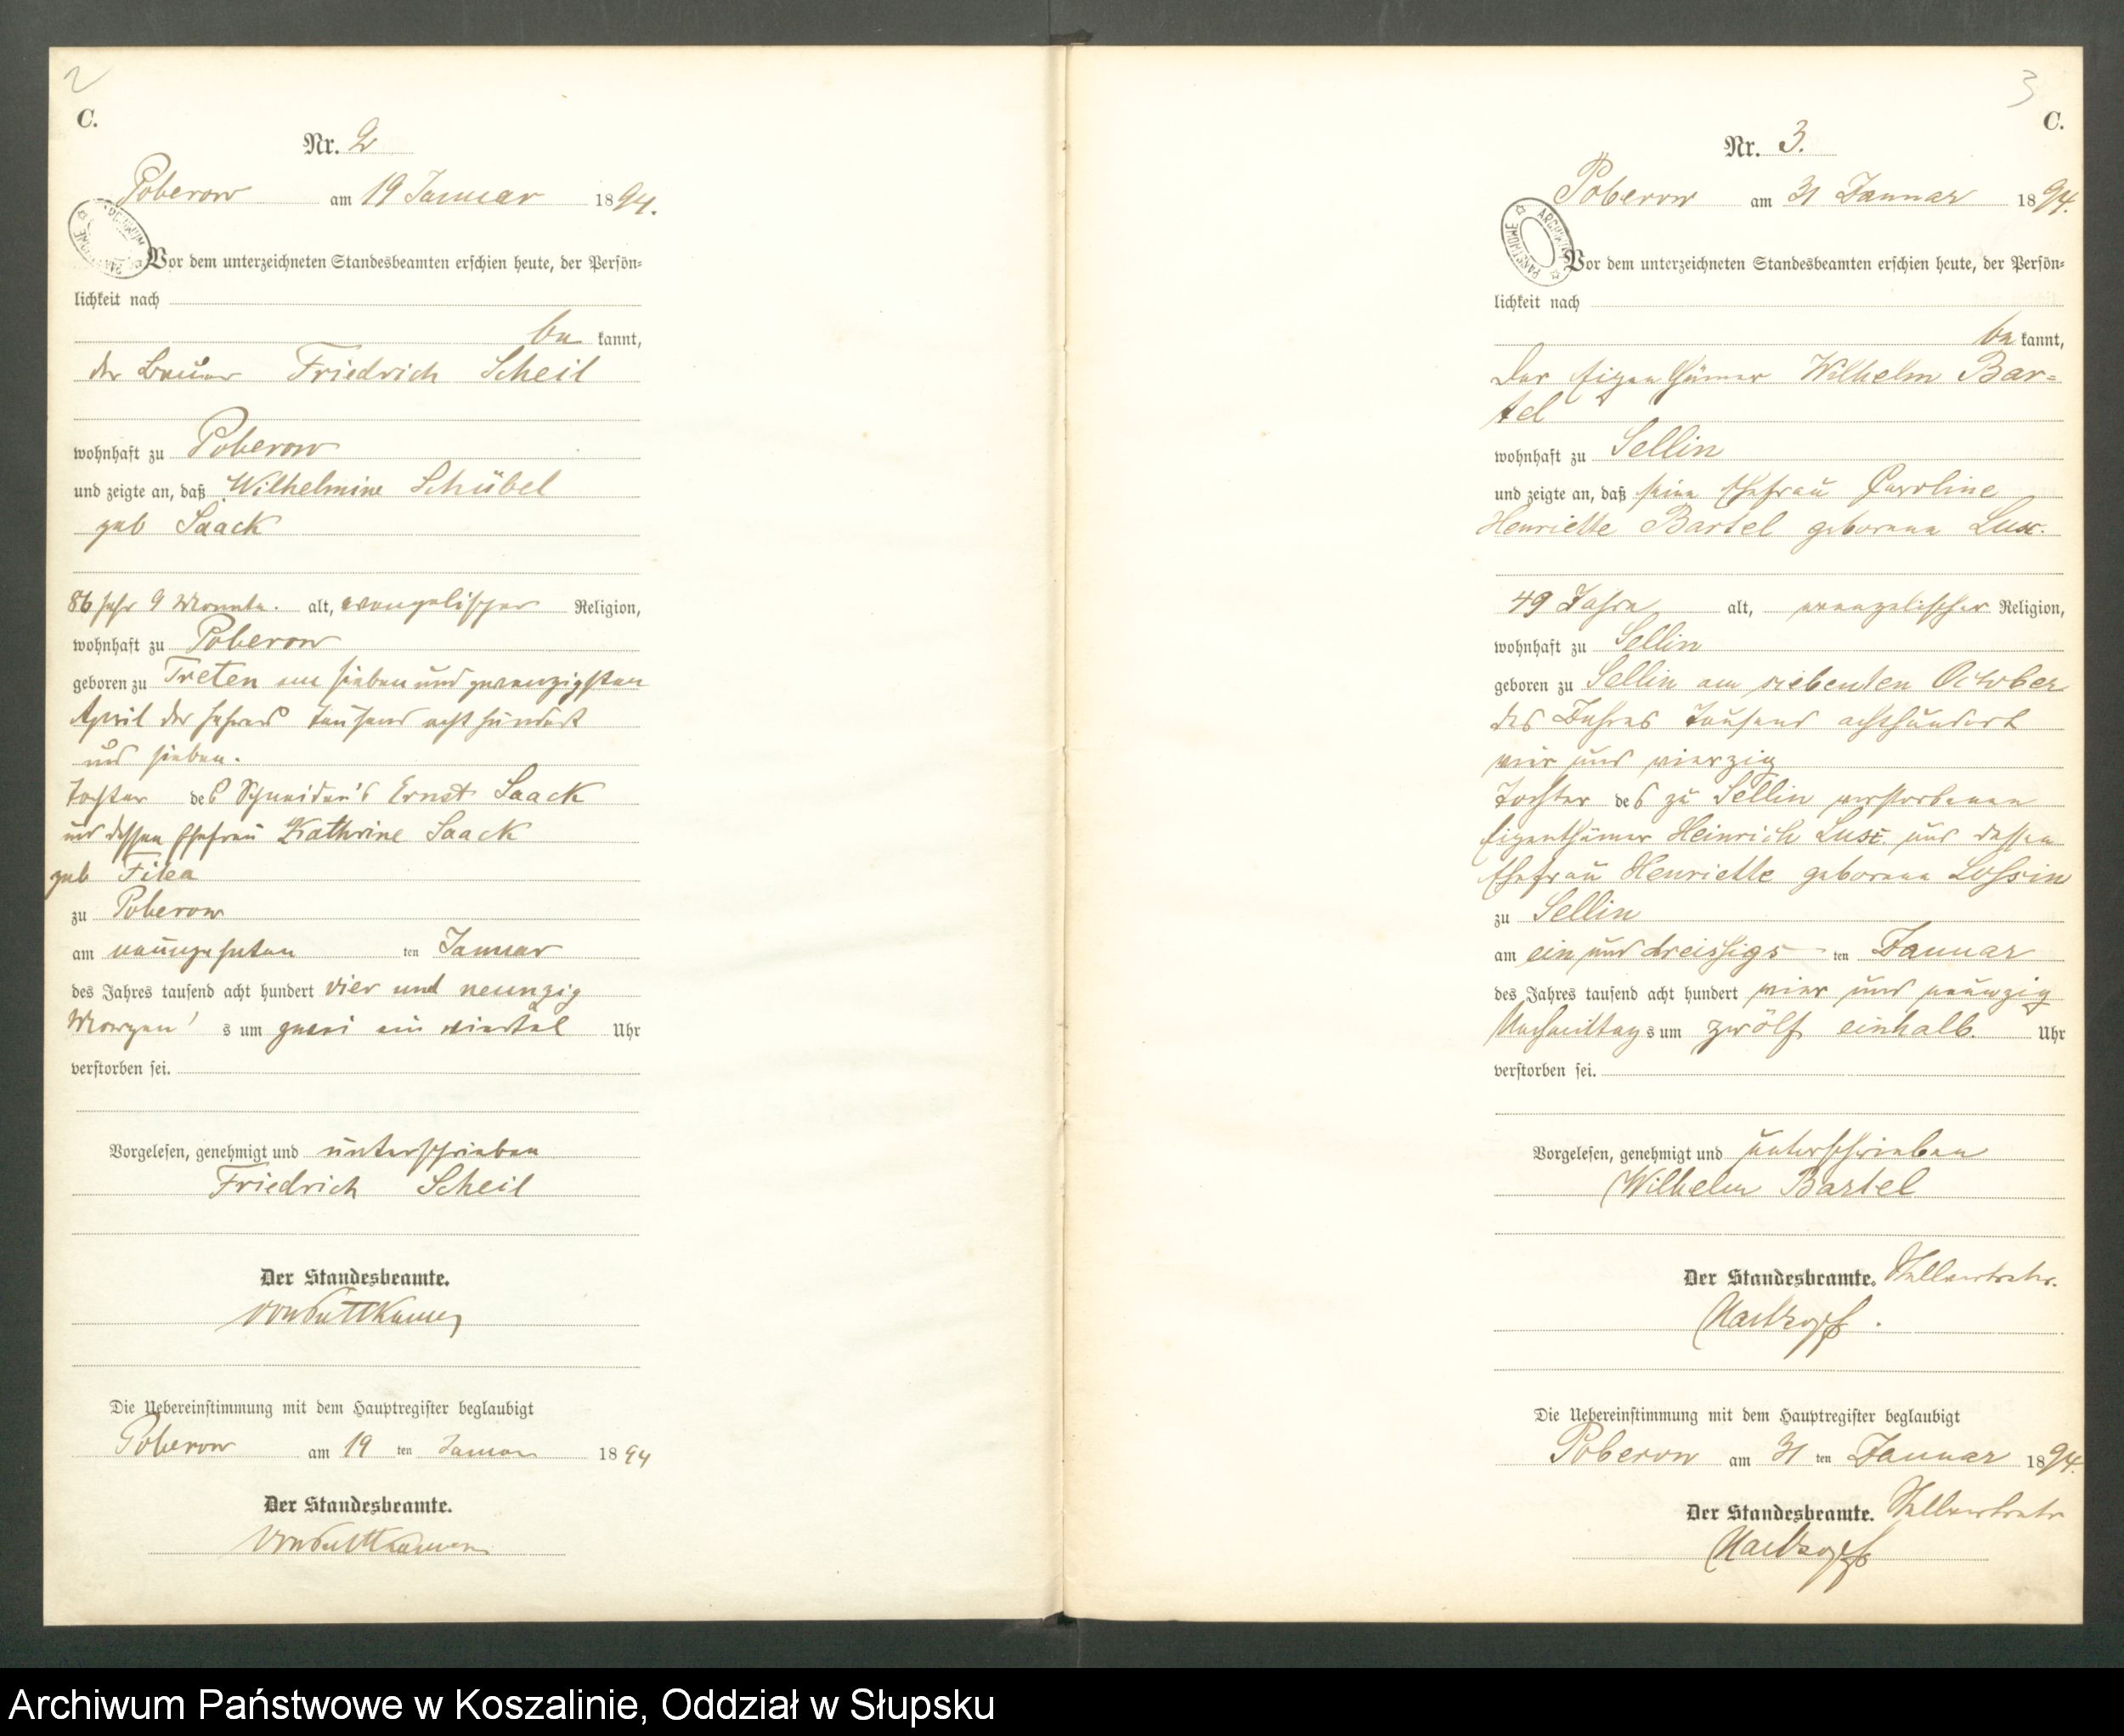 2
C.
Nr. 2
Poberow am 19 Januar 1894.
Vor dem unterzeichneten Standesbeamten erschien heute, der Persön-
lichkeit nach
be kannt,
der Bauer Friedrich Scheil
wohnhaft zu Poberow
und zeigte an, daß Wilhelmine Schübel
geb Saack
86 Jahr 9 Monate. alt, evangelischer Religion,
wohnhaft zu Poberow
geboren zu Treten am sieben und zwanzigsten
April des Jahres tausend acht hundert
und sieben.
Tochter des Schneider's Ernst Saack
und dessen Ehefrau Kathrine Saack
geb
zu Poberow
am neunzehnten ten Januar
des Jahres tausend acht hundert vier und neunzig
Morgen's um zwei ein viertel Uhr
verstorben sei.
Vorgelesen, genehmigt und unterschrieben
Friedrich Scheil
Der Standesbeamte.
von Puttkamer
Die Uebereinstimmung mit dem Hauptregister beglaubigt
Poberow am 19 ten Januar 1894
Der Standesbeamte.
von Puttkamer
3
C.
Nr. 3.
Poberow am 31 Januar 1894.
ARCHIWUM PAŃSTWOWE
Vor dem unterzeichneten Standesbeamten erschien heute, der Persön-
lichkeit nach
be kannt,
der Eigenthümer Wilhelm Bar-
tel
wohnhaft zu Sellin
und zeigte an, daß seine Ehefrau Caroline
Henriette Bartel geborene
49 Jahre alt, evangelischer Religion,
wohnhaft zu Sellin
geboren zu Sellin am siebenten October
des Jahres tausend achthundert
vier und vierzig
Tochter des zu Sellin verstorbenen
Eigenthümer Heinrich und dessen
Ehefrau Henriette geborene
zu Sellin
am ein und dreissigs ten Januar
des Jahres tausend acht hundert vier und neunzig
Nachmittags um zwölf einhalb. Uhr
verstorben sei.
Vorgelesen, genehmigt und unterschrieben
Wilhelm Bartel
Der Standesbeamte. Stellvertreter.
Die Uebereinstimmung mit dem Hauptregister beglaubigt
Poberow am 31 ten Januar 1894.
Der Standesbeamte. Stellvertreter
Archiwum Państwowe w Koszalinie, Oddział w Słupsku